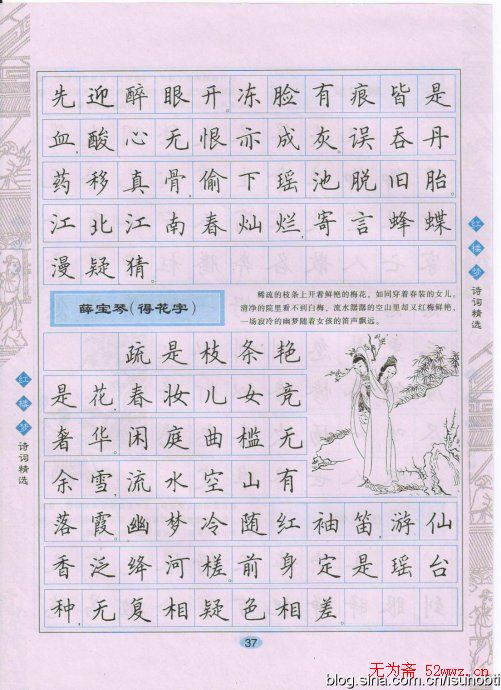 先迎醉眼开。冻脸有痕皆是
血,酸心无恨亦成灰。误吞丹
药移真骨,偷下瑶池脱旧胎。
江北江南春灿烂,寄言蜂蝶
漫疑猜。
薛宝琴(得花字)
稀疏的枝条上开着鲜艳的梅花,如同穿着春装的女儿,
清净的院里看不到白梅,流水潺潺的空山里却又红梅鲜艳,
一场寂冷的幽梦随着女孩的笛声飘远。
疏是枝条艳
是花,春妆儿女竞
奢华。闲庭曲槛无
余雪,流水空山有
落霞。幽梦冷随红袖笛,游仙
香泛绛河槎。前身定是瑶台
种,无复相疑色相差。
红楼梦诗词精选
红楼梦诗词精选
37
无为斋 52wwz.cn
blog.sina.com.cn/isunobu